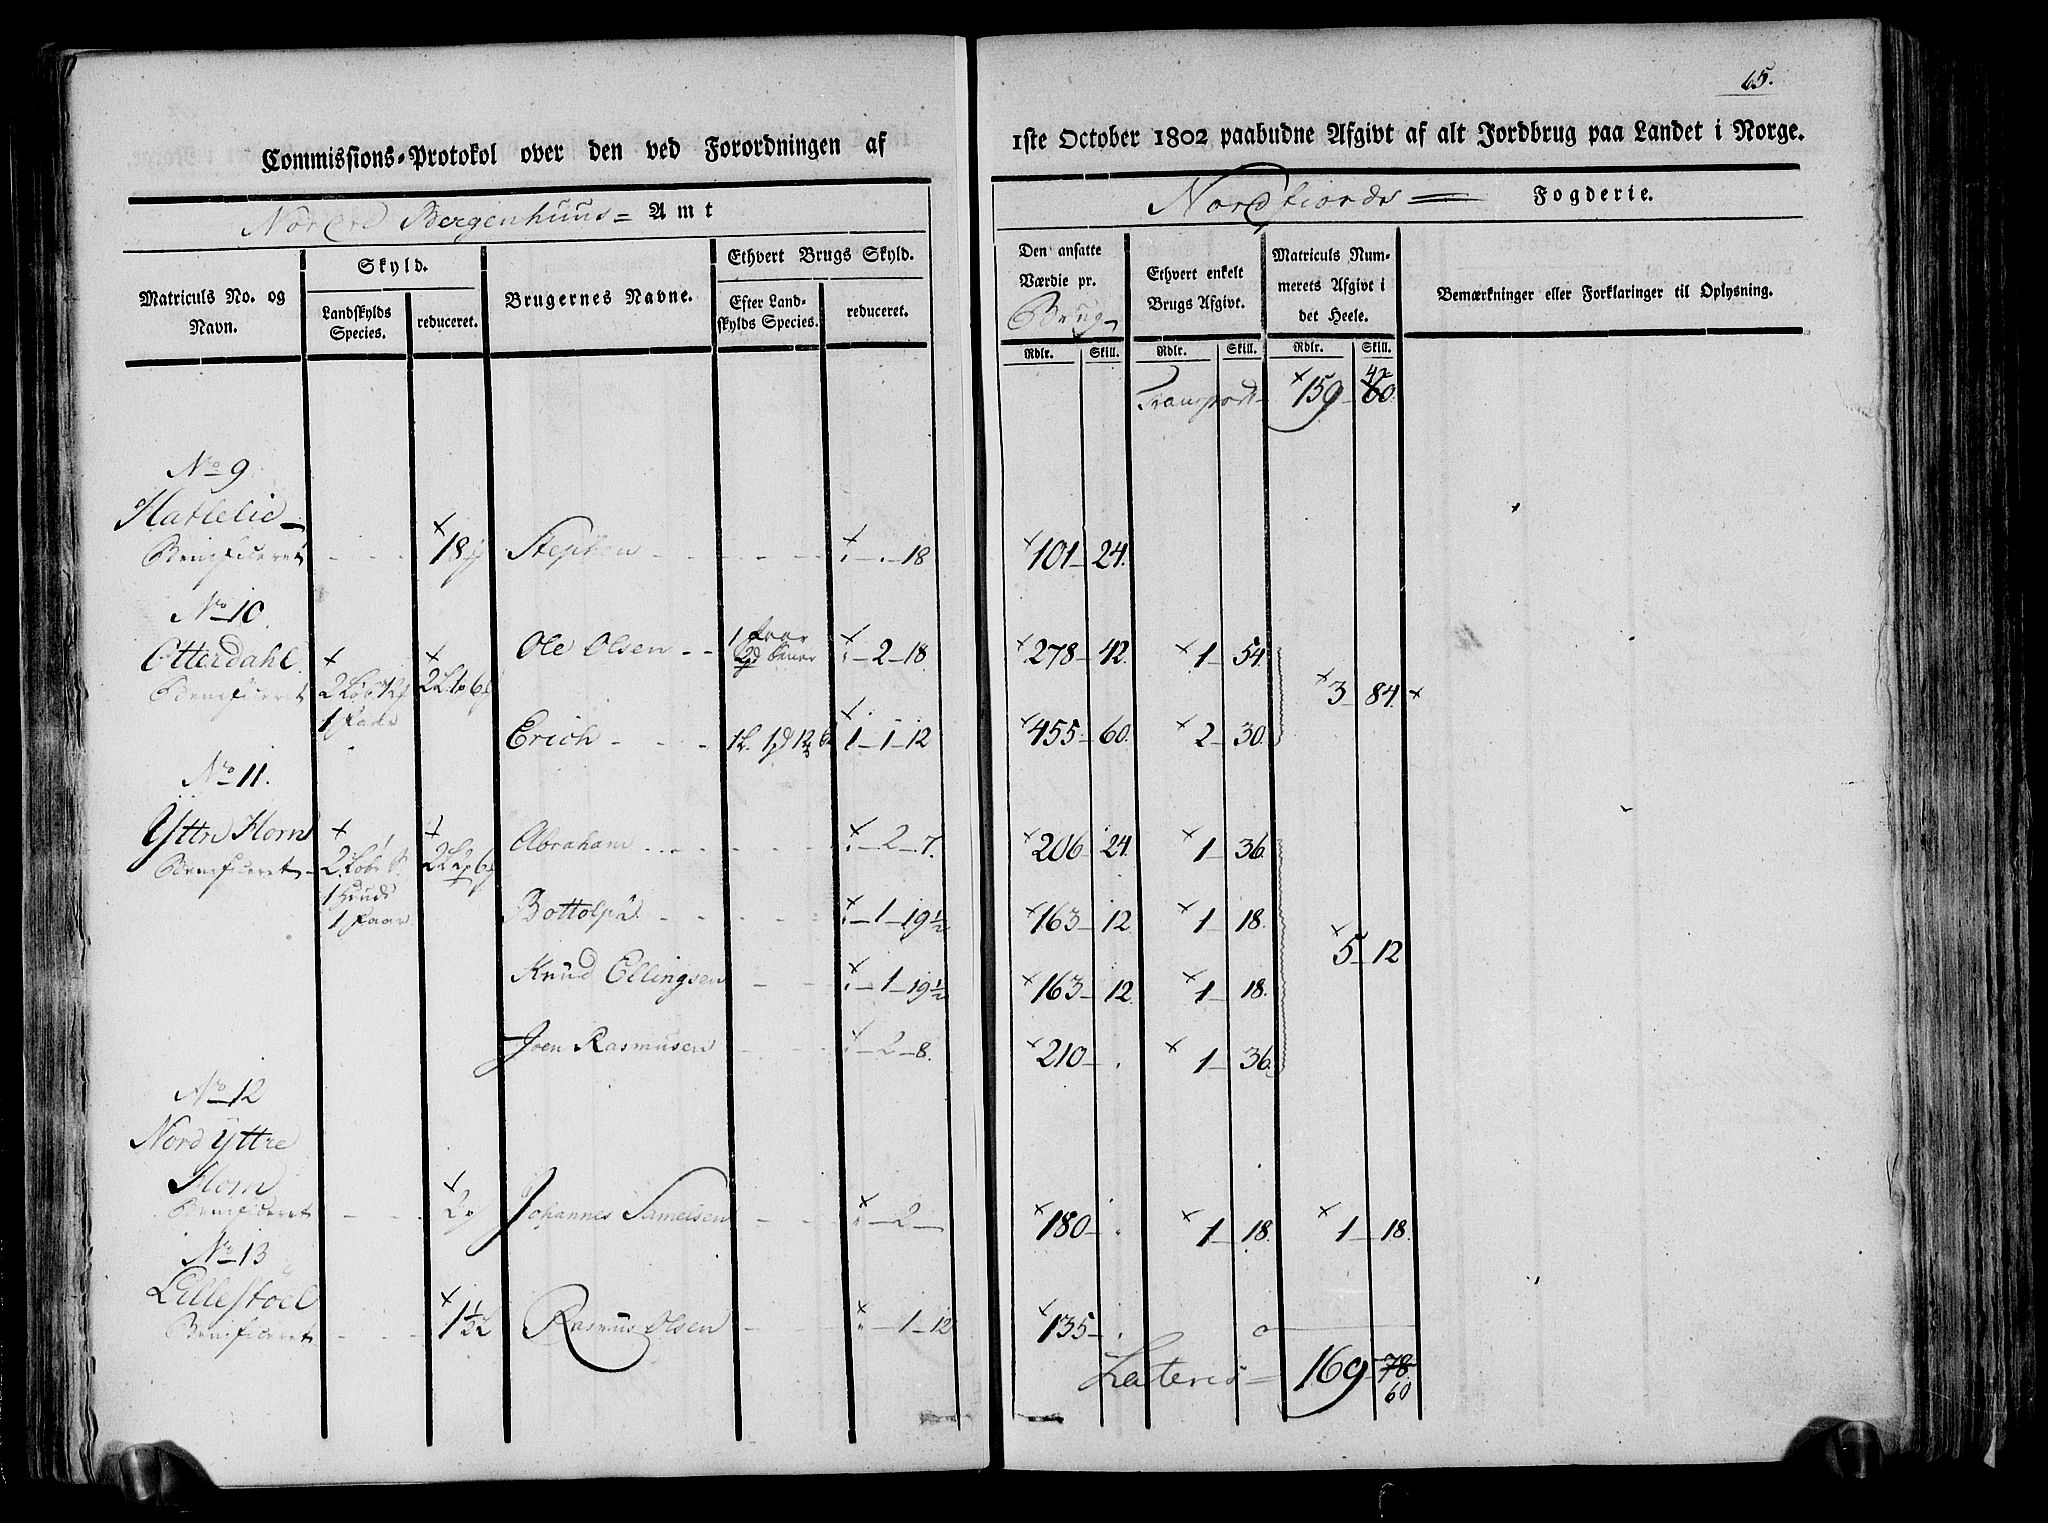 65.
Commissions-Protokol over den ved Forordningen af 1ste October 1802 paabudne Afgivt af alt Jordbrug paa Landet i Norge.
Nordre Bergenhuus Amt
Nordfiords Fogderie.
Matriculs No. og Navn.
Skyld.
Landskylds Species.
reduceret.
Brugernes Navne.
Ethvert Brugs Skyld.
Efter Landskylds Species.
reduceret.
Den ansatte Værdie pr. Brug
Ethvert enkelt Brugs Afgivt.
Matriculs Nummerets Afgivt i det Heele.
Bemærkninger eller Forklaringer til Oplysning.
Rdlr. Skill. Rdlr. Skill. Rdlr. Skill.
Transport 159 60 42
No 9
Hatlelid
Benificeret 18 Stephen 18 101 24.
No 10
Otterdahl
Benificeret
1 Faar
Ole Olsen 1 Faar 2 18 278 42. 1 54
3 84
Erich 1 1 12 455 60. 2 30.
No 11.
Yttre Horn
Benificeret
1 Huud
1 Faar
Abraham 2 7. 206 24. 1 36.
Bottolph 1 19 1/2 163 12 1 18.
5 12
Knud Ellingsen 1 19 1/2 163 12. 1 18.
Joen Rasmusen 2 8. 210 . 1 36.
No 12
Nord Yttre
Horn
Benificeret 2 Johannes Samelsen 2 180 . 1 18. 1 18.
No 13
Lillestöel
Benificeret Rasmus Olsen 1 12 135 .
Lateris 169 78
60